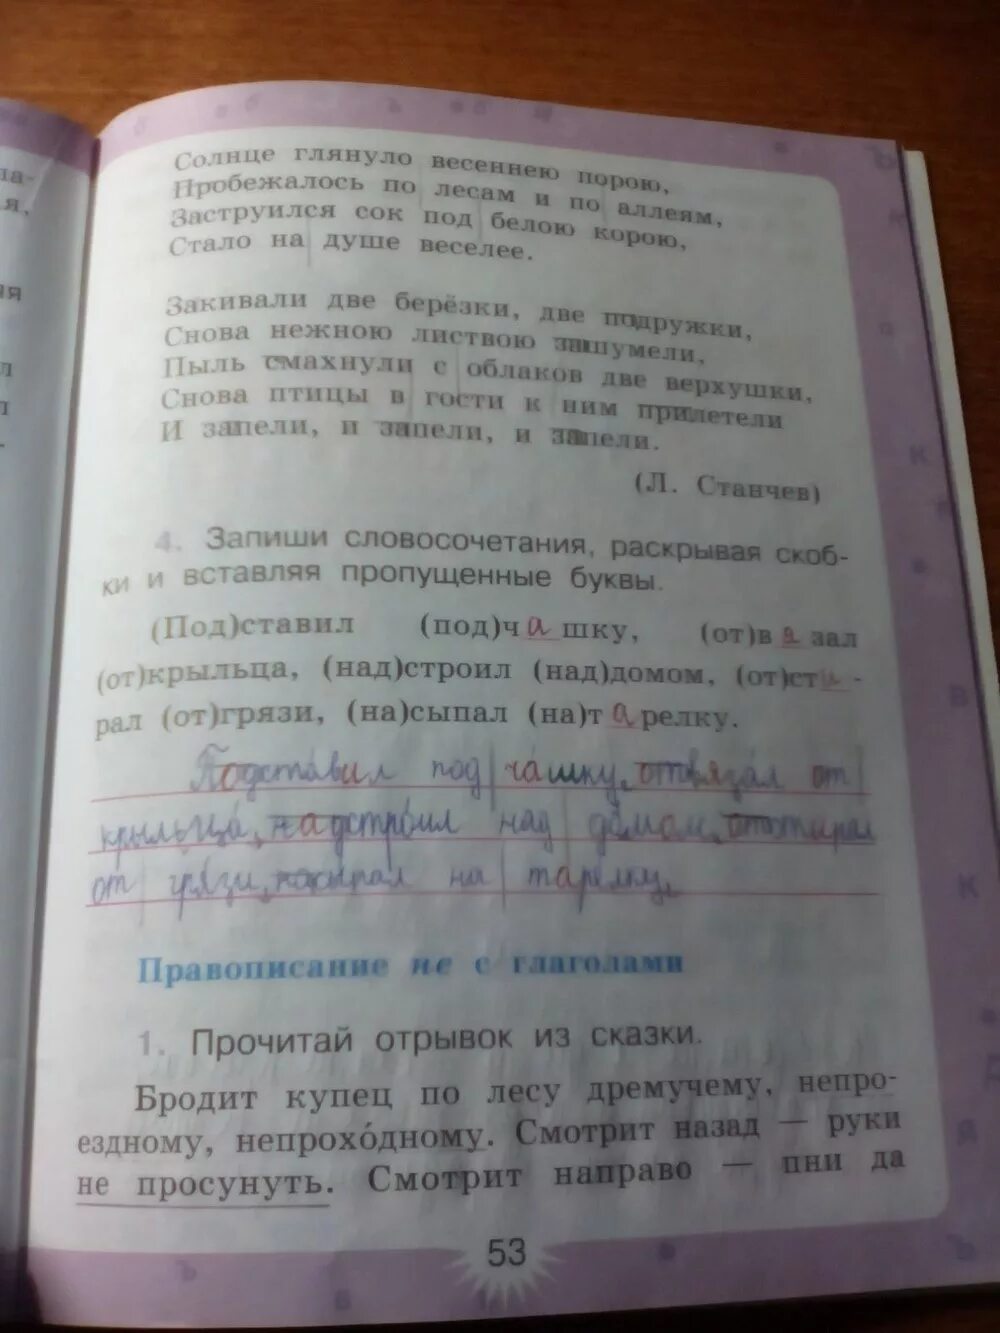 Солнце глянуло весеннею порою,
Пробежалось по лесам и по аллеям,
Заструился сок под белою корою,
Стало на душе веселее.
Закивали две берёзки, две подружки,
Снова нежною листвою зашумели,
Пыль смахнули с облаков две верхушки,
Снова птицы в гости к ним прилетели
И запели, и запели, и запели.
(Л. Станчев)
4. Запиши словосочетания, раскрывая скоб-
ки и вставляя пропущенные буквы.
(Под)ставил (под)чашку, (от)вязал
(от)крыльца, (над)строил (над)домом, (от)сти-
рал (от)грязи, (на)сыпал (на)тарелку.
Подставил под чашку, отвязал от
крыльца, надстроил над домом, отстирал
от грязи, насыпал на тарелку.
Правописание не с глаголами
1. Прочитай отрывок из сказки.
Бродит купец по лесу дремучему, непро-
ездному, непрохо́дному. Смотрит назад — руки
не просунуть. Смотрит направо — пни да
53